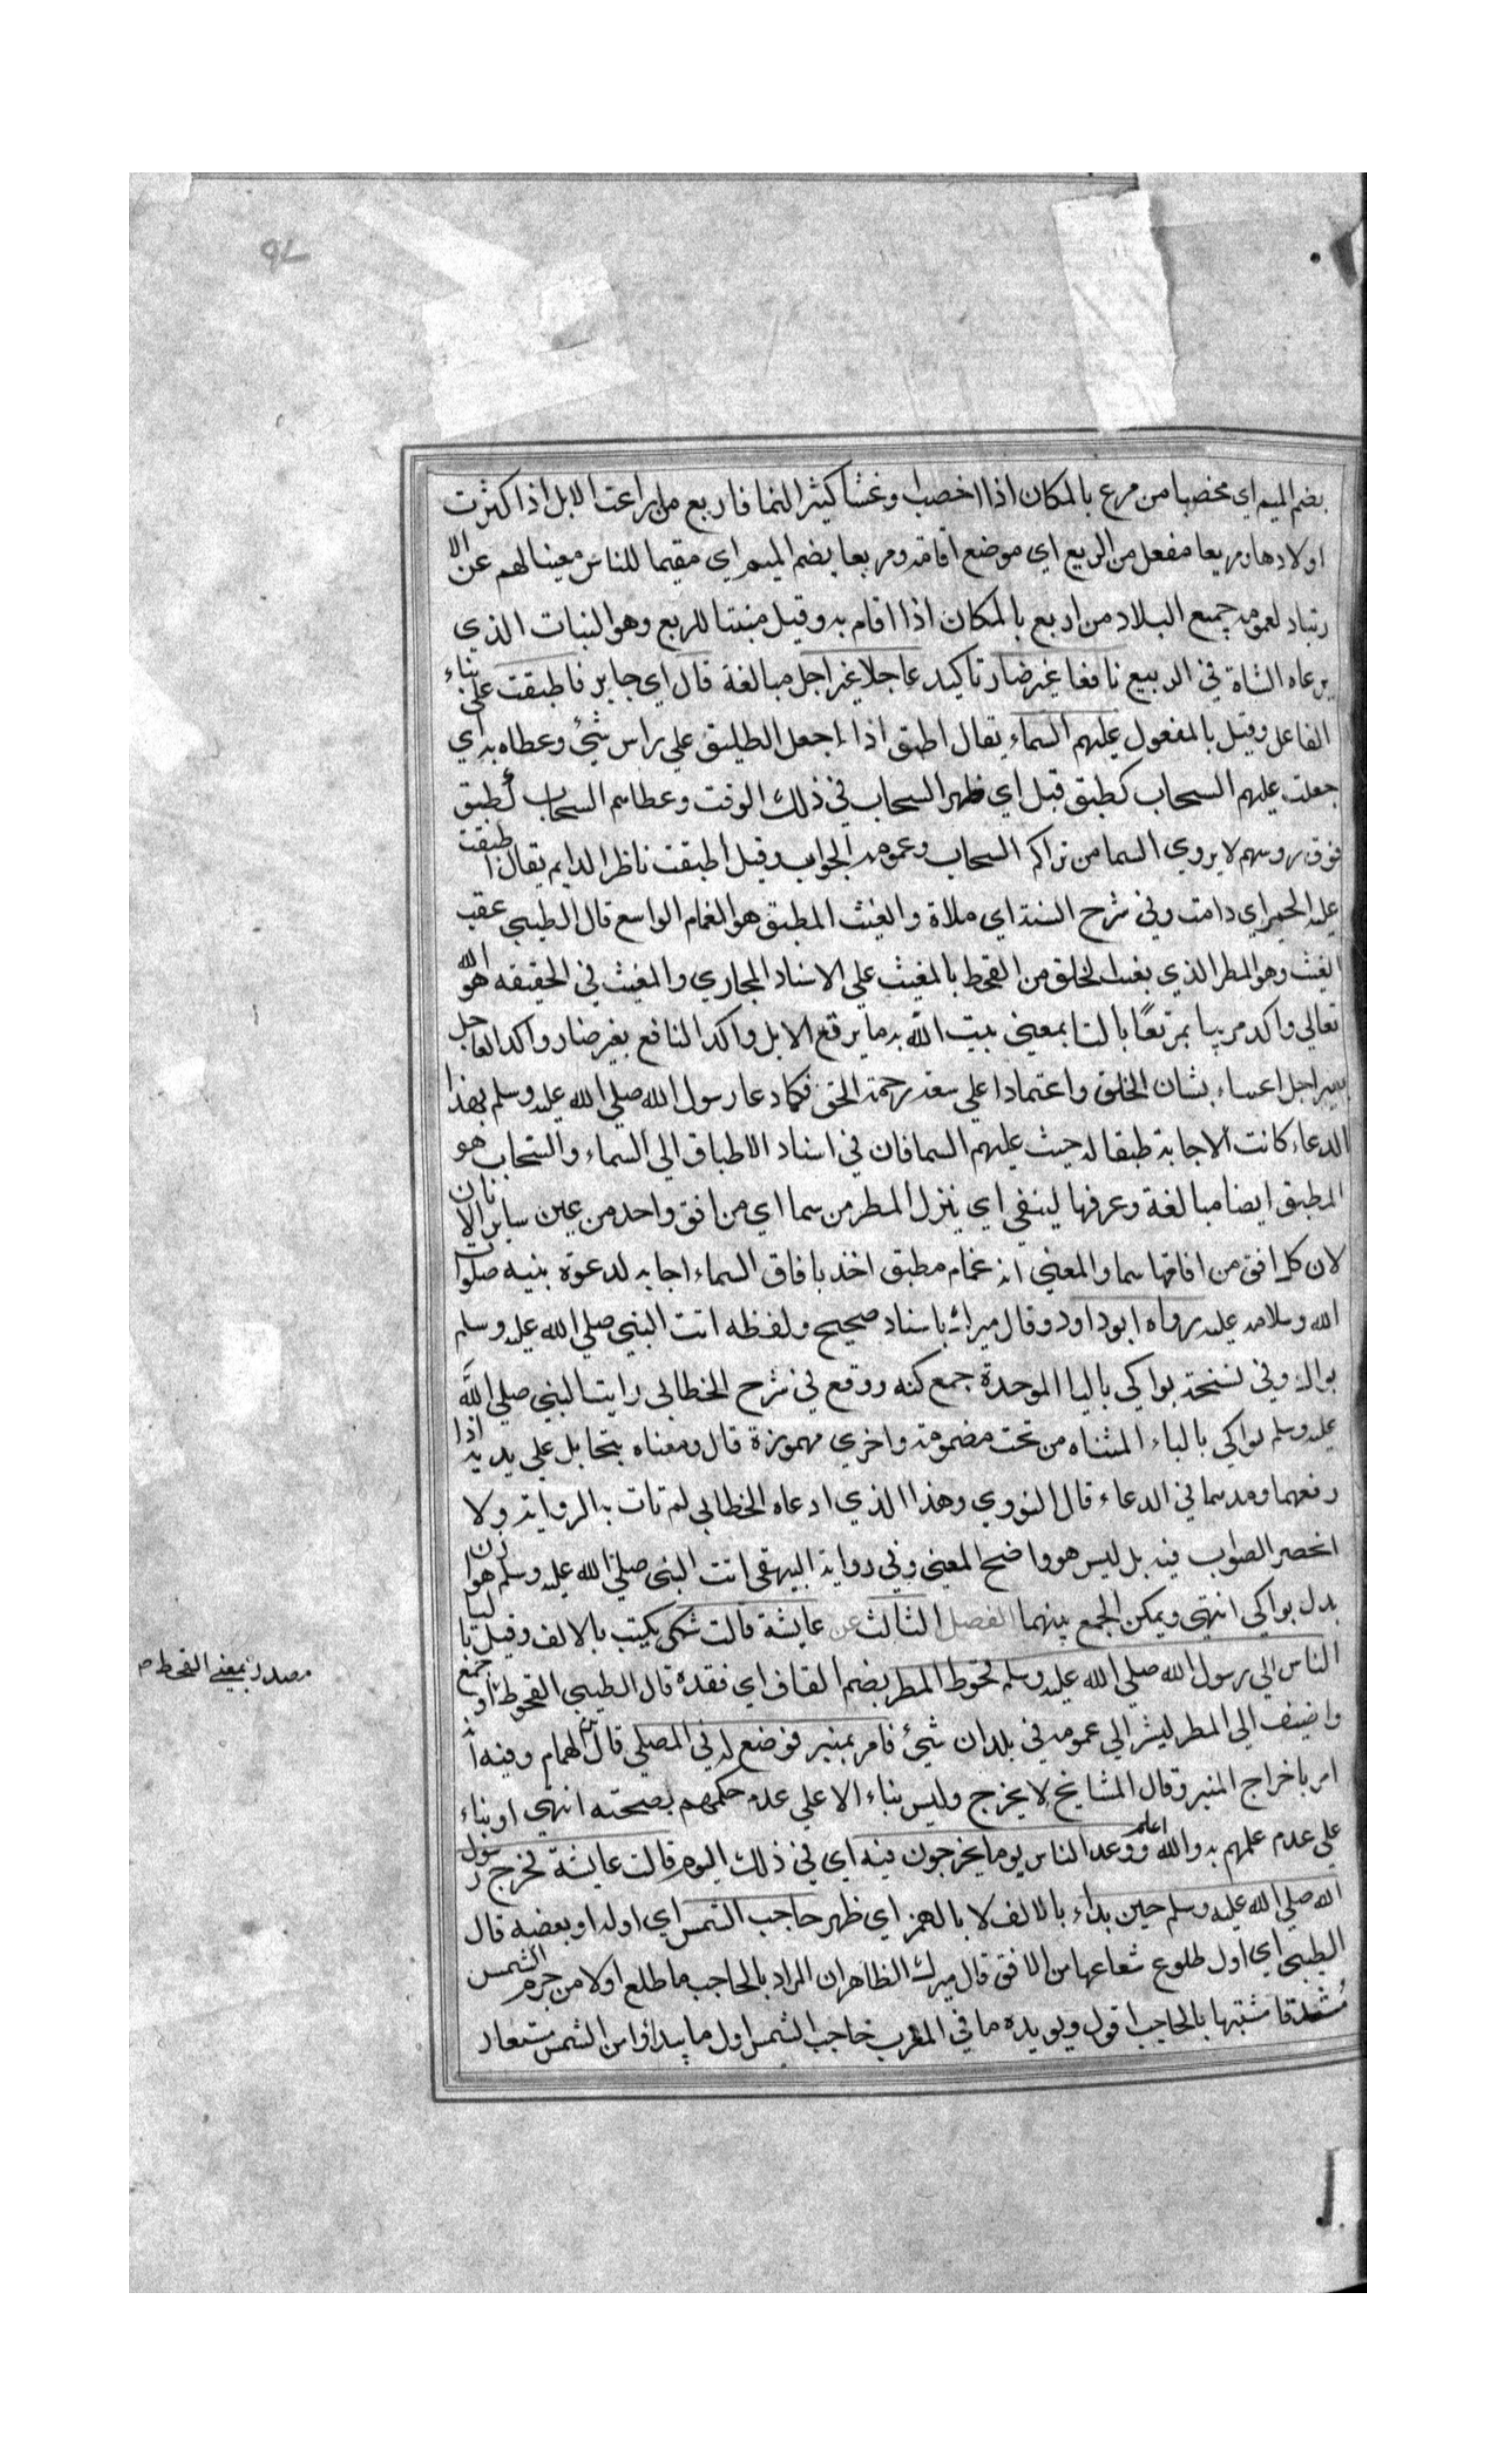 بضم الميم اي مخصبا من مرع بالمكان اذا اخصب وغثا كثير النما فاربع من ابراعت الابل اذا كثرت
اولادها ومربعا مفعل من الربع اي موضع اقامة ومربعا بضم الميم اي مقيما للناس مغنيا لهم عن الا
رتياد لعمومه جميع البلاد من اربع بالمكان اذا اقام به وقيل منبتا للربع وهو النبات الذي
يرعاه الشاة في الربيع نافعا غير ضار تاكيد عاجلا غير اجل مبالغة قال اي جابر فاطبقت علي بناء
الفاعل وقيل بالمفعول عليهم السماء يقال اطبق اذا جعل الطبق علي راس شئ وغطاه به اي
جعلت عليهم السحاب كطبق قيل اي ظهر السحاب في ذلك الوقت وغطاهم السحاب كطبق
فوق روسهم لا يروي السما من تراكم السحاب وعمومه الجوانب وقيل اطبقت ناظر الدايم يقال اطبقت
عليه الحمي اي دامت وفي شرح السنة اي ملاة والغيث المطبق هو الغمام الواسع قال الطيبي عقب
الغيث وهو المطر الذي يغيث الخلق من القحط بالمغيث علي الاسناد المجازي والمغيث في الحقيقه هو الله
تعالي واكد مريبا بمرتعا بالتا بمعني ينبت الله به ما يرتع الابل واكد النافع بغير ضار واكد العاجل
بغير اجل اعتناء بشان الخلق واعتمادا علي سعة رحمة الحق فكما دعا رسول الله صلي الله عليه وسلم بهذا
الدعاء كانت الاجابة طبقا له حيث عليهم السما فان في اسناد الاطباق الي السماء والسحاب هو
المطبق ايضا مبالغة وعرفها لينفي اي ينزل المطر من سما اي من افق واحد من عين ساير الافاق
لان كل افق من افاقها سما والمعني انه غمام مطبق اخذ بافاق السماء اجابه لدعوة نبيه صلوات
الله وسلامه عليه رواه ابو داود وقال ميرك باسناد صحيح ولفظه اتت النبي صلي الله عليه وسلم
بواك وفي نسخة بواكي باليا الموحدة جمع كنه ووقع في شرح الخطابي رايت النبي صلي الله
عليه وسلم يواكي بالياء المثناه من تحت مضمومة واخري مهموزة قال ومعناه يتحامل علي يديه اذا
رفعهما ومدهما في الدعاء قال النووي وهذا الذي ادعاه الخطابي لم تات به الرواية ولا
انحصر الصواب فيه بل ليس هو واضح المعني وفي رواية البيهقي اتت النبي صلي الله عليه وسلم هوازن
بدل بواكي انتهي ويمكن الجمع بينهما الفصل الثالث عن عايشة قالت شكي يكتب بالالف وقيل باليا
الناس الي رسول الله صلي الله عليه وسلم قحوط المطر بضم القاف اي فقده قال الطيبي القحوط او جمع
واضيف الي المطر ليشر الي عمومه في بلدان شئ فامر بمنبر فوضع له في المصلي قال بن الهمام وفيه انه
امر باخراج المنبر وقال المشايخ لا يخرج وليس بناء الا علي عدم حكمهم بصحته انتهي او بناء
علي عدم علمهم به والله اعلم ووعد الناس يوما يخرجون فيه اي في ذلك اليوم قالت عايشة فخرج رسول
الله صلي الله عليه وسلم حين بداء بالالف لا بالهمز اي ظهر حاجب الشمس اي اوله او بعضه قال
الطيبي اي اول طلوع شعاعها من الافق قال ميرك الظاهر ان المراد بالحاجب ما طلع اولا من جرم الشمس
مشتبها بالحاجب اقول ويويده ما في المغرب حاجب الشمس اول ما يبداؤ من الشمس مستعار
مصدر بمعني القحط م